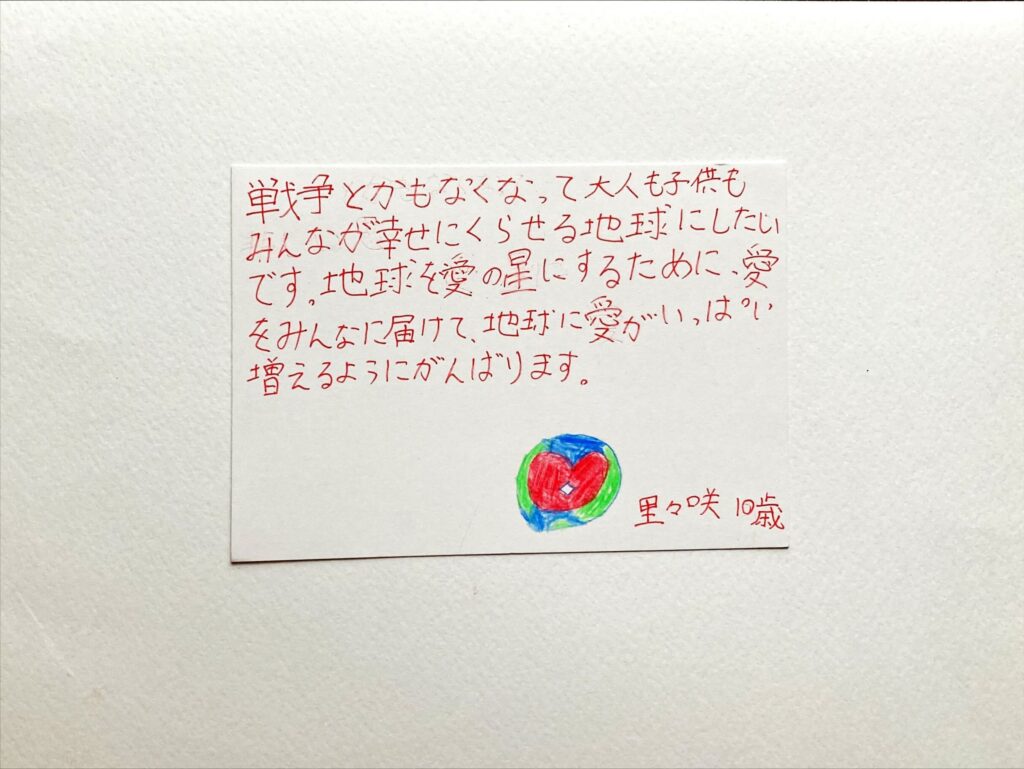 戦争とかもなくなって大人も子供も
みんなが幸せにくらせる地球にしたい
です。地球を愛の星にするために、愛
をみんなに届けて、地球に愛がいっぱい
増えるようにがんばります。
里々咲 10歳